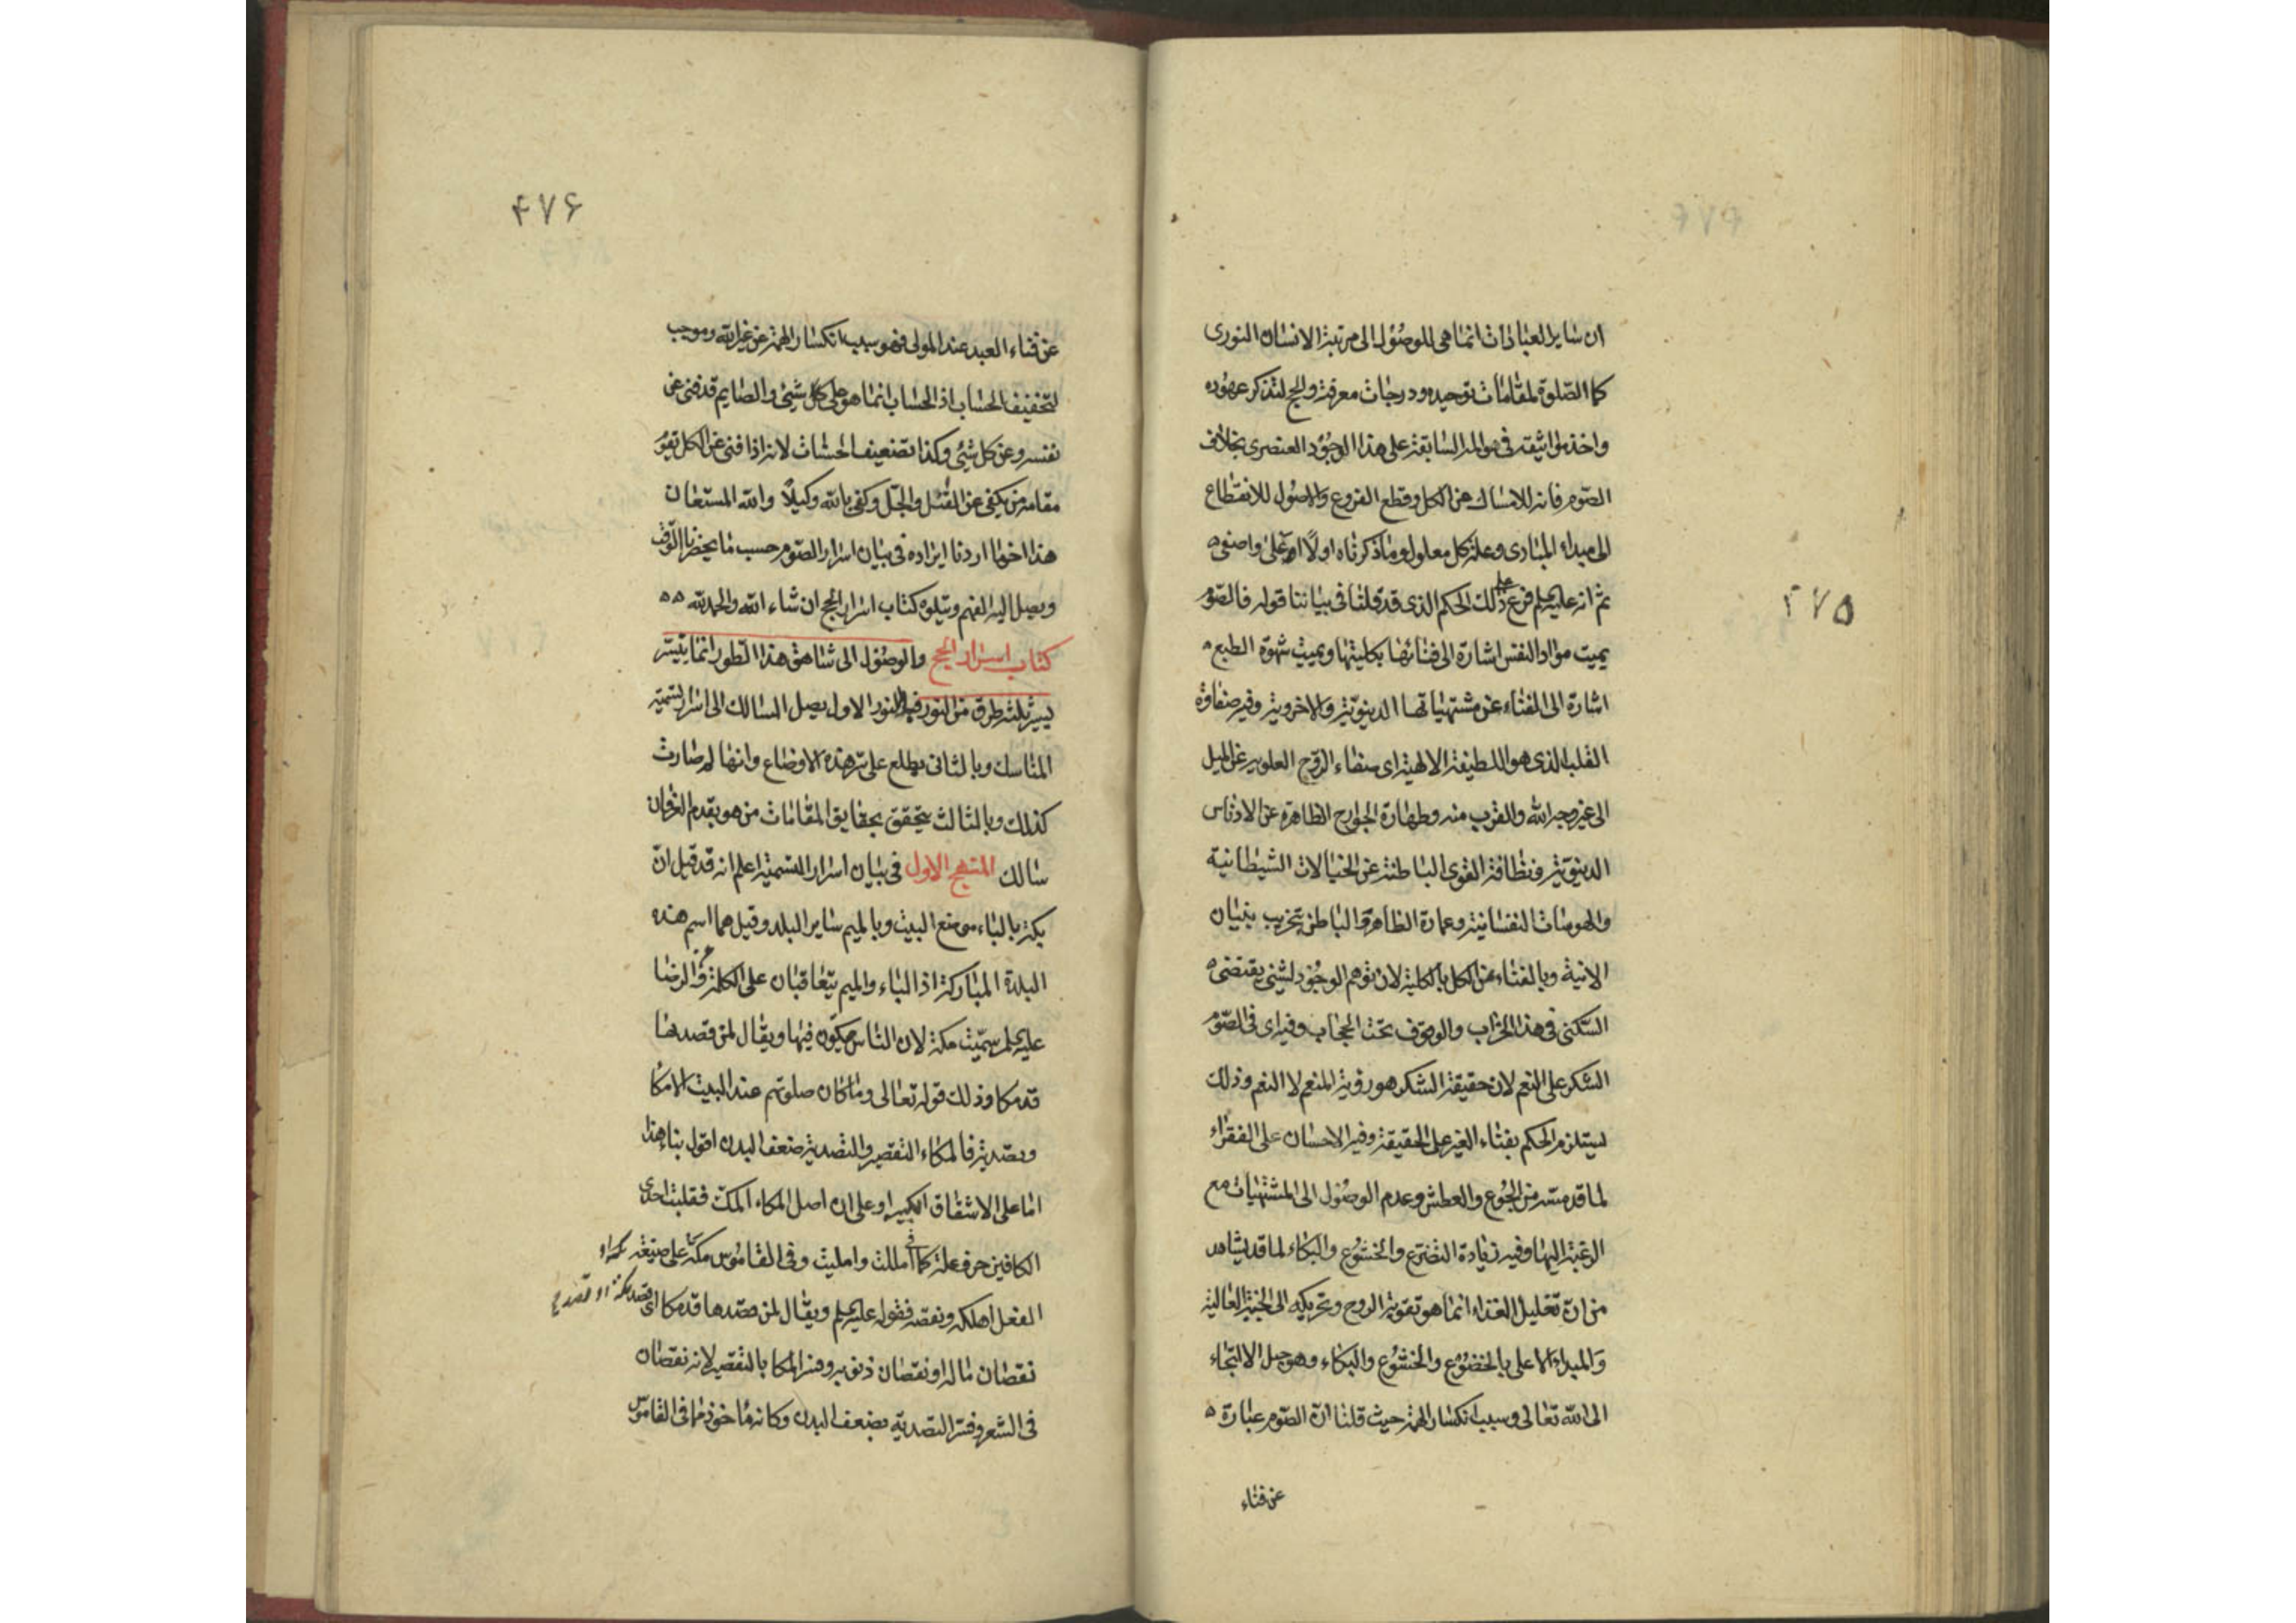 ۴۷۵
ان ساير العبادات انما هى للوصول الى مرتبة الانسان النورى
كما الصلوة لمقامات توحيده ودرجات معرفته والحج لتذكر عهوده
واخذ مواثيقه فى عوالمه السابقة على هذا الوجود العنصرى بخلاف
الصوم فانه للامساك عن الكل وقطع الفروع والاصول للانقطاع
الى مبداء المبادى وعلة كل معلول وما ذكرناه اولاً اعلى واصفى
ثم انه عليه السلم فرع على ذلك الحكم الذى قد قلنا فى بياننا قوله فالصوم
يميت مواد النفس اشارة الى فنائها بكليتها ويميت شهوة الطبع
اشارة الى الفناء عن مشتهياتها الدينوية والاخروية وفيه صفاوة
القلب الذى هو اللطيفة الالهية اى صفاء الروح العلويه عن الميل
الى غير وجه الله والقرب منه وطهارة الجوارح الظاهرة عن الادناس
الدينوية ونظافة القوى الباطنة عن الخيالات الشيطانية
والهوسات النفسانية وعمارة الظاهر والباطن بتخريب بنيان
الانية وبالفناء عن الكل بالكلية لان توهم الوجود لشئ يقتضى
السكنى فى هذا الخراب والوقوف تحت الحجاب وفيه اى فى الصوم
الشكر على النعم لان حقيقة الشكر هو رؤية المنعم لا النعم وذلك
يستلزم الحكم بفناء الغير على الحقيقة وفيه الاحسان على الفقراء
لما قد مسه من الجوع والعطش وعدم الوصول الى المشتهيات مع
الرغبة اليها وفيه زيادة التضرع والخشوع والبكاء لما قد يشاهد
من ان تقليل الغذاء انما هو تقوية الروح وتحريكه الى الجنبة العالية
والمبداء الاعلى بالخضوع والخشوع والبكاء وهو حبل الالتجاء
الى الله تعالى وسبب انكسار الهمة حيث قلنا ان الصوم عبارة
عن فناء
۴۷۶
عن فناء العبد عند المولى فهو سبب انكسار الهمة عن غير الله وموجب
لتخفيف الحساب اذ الحساب انما هو على كل شئ والصايم قد فنى عن
نفسه وعن كل شئ وكذا تضعيف الحسنات لانه اذا فنى عن الكل يقوم
مقامه من يكفى عن القل والجل وكفى بالله وكيلاً والله المستعان
هذا اخر ما اردنا ايراده فى بيان اسرار الصوم حسب ما يحضرنا الوقت
ويصل اليه الفهم ويتلوه كتاب اسرار الحج ان شاء الله والحمد لله
كتاب اسرار الحج والوصول الى شاهق هذا الطور انما يتيسر
بسير ثلثة طرق من النور فبالنور الاول يصل السالك الى اسرار تسمية
المناسك وبالثانى يطلع على سر هذه الاوضاع وانها لم صارت
كذلك وبالثالث يتحقق بحقايق المقامات من هو بقدم العرفان
سالك المنهج الاول فى بيان اسرار التسمية اعلم انه قد قيل ان
بكة بالباء موضع البيت وبالميم ساير البلد وقيل هما اسم هذه
البلدة المباركة اذ الباء والميم يتعاقبان على الكلمة وعن الرضا
عليه السلم سميت مكة لان الناس يمكون فيها ويقال لمن قصدها
قد مكا وذلك قوله تعالى وما كان صلوتهم عند البيت الا مكا
وتصدية فالمكاء التقصير والتصدية ضعف البدن اقول بناء هذا
اما على الاشتقاق الكبير او على ان اصل المكاء المكك فقلبت احدى
الكافين حرف علة كما فى امللت وامليت وفى القاموس مكه على صيغة
الفعل اهلكه ونقصه فقوله عليه السلم ويقال لمن قصدها قد مكا اى
نقصان ماله او نقصان ذنوبه وفسر المكا بالتقصير لانه نقصان
فى الشعر وفسر التصدية بضعف البدن وكانه ماخوذ مما فى القاموس